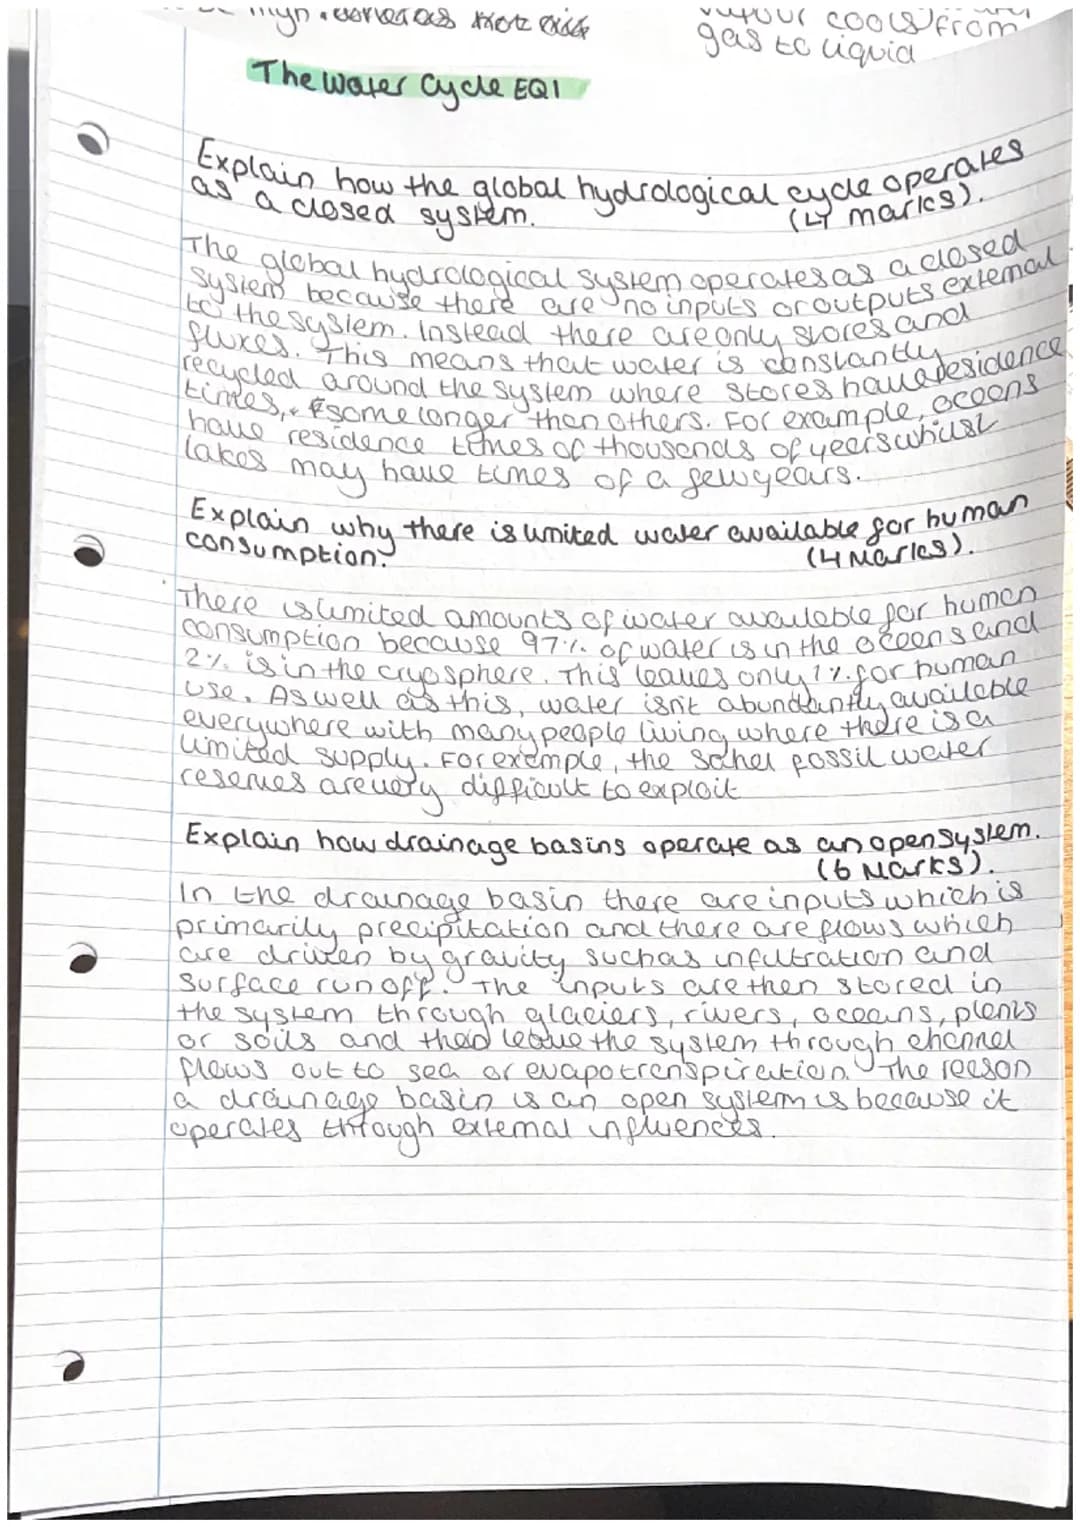 vapour cools from
gas to liquid
The Water Cycle EQ1
Explain how the global hydrological cycle operates
as a closed system. (4 marks).
The global hydrological system operates as a closed
system because there are no inputs or outputs external
to the system. Instead there are only stores and
fluxes. This means that water is constantly
recycled around the system where stores have residence
times, some longer than others. For example, oceans
have residence times of thousands of years whilst
lakes may have times of a few years.
Explain why there is limited water available for human
consumption. (4 Marks).
There is limited amounts of water available for human
consumption because 97% of water is in the oceens and
2% is in the cryosphere. This leaves only 1% for human
use. As well as this, water isn't abundantly available
everywhere with many people living where there is a
limited supply. For example, the Sahel fossil water
reserves are very difficult to exploit
Explain how drainage basins operate as an open system.
(6 Marks).
In the drainage basin there are inputs which is
primarily precipitation and there are flows which
are driven by gravity such as infiltration and
surface runoff. The inputs are then stored in
the system through glaciers, rivers, oceans, plants
or soils and then leave the system through channel
flows out to sea or evapotranspiration. The reason
a drainage basin is an open system is because it
operates through external influences.